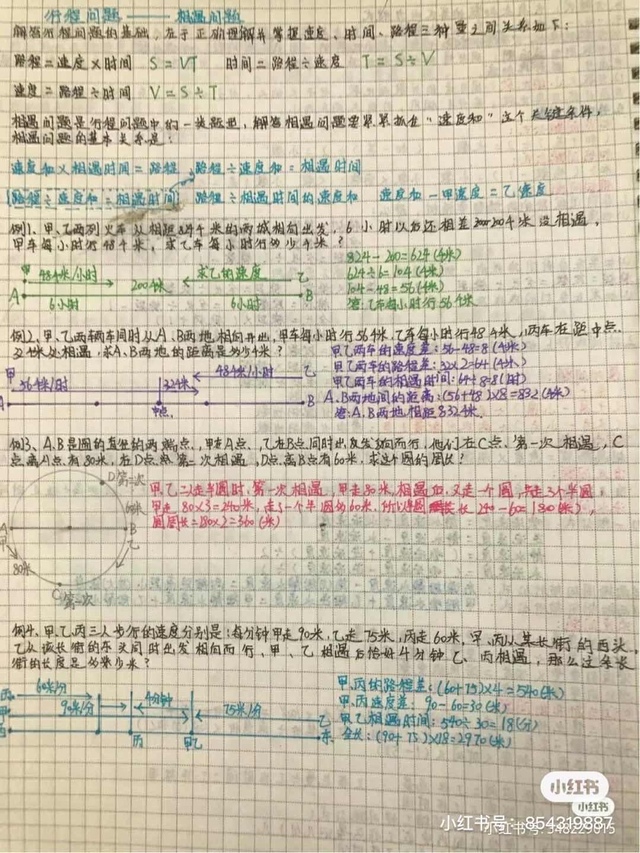 行程问题——相遇问题
解答行程问题的基础，在于正确理解并掌握速度、时间、路程三种量之间关系如下：
路程＝速度×时间 S＝VT 时间＝路程÷速度 T＝S÷V
速度＝路程÷时间 V＝S÷T
相遇问题是行程问题中的一类题型，解答相遇问题要紧紧抓住"速度和"这个关键条件，
相遇问题的基本关系是：
速度和×相遇时间＝路程 路程÷速度和＝相遇时间
路程÷速度和＝相遇时间 路程÷相遇时间的速度和 速度和－甲速度＝乙速度
例1、甲、乙两列火车从相距824千米的两城相向出发，6小时以后还相差200千米没相遇，
甲车每小时行48千米，求乙车每小时行的多少千米？
824－200＝624(千米)
624÷6＝104(千米)
104－48＝56(千米)
答：乙车每小时行56千米
甲 48千米/小时 200千米 求乙的速度 乙
A 6小时 6小时 B
例2、甲、乙两车同时从A、B两地相向开出，甲车每小时行56千米，乙车每小时行48千米，两车在距中点
32千米处相遇，求A、B两地的距离是多少千米？
甲乙两车的速度差：56－48＝8(千米)
甲乙两车的路程差：32×2＝64(千米)
甲乙两车的相遇时间：64÷8＝8(时)
A、B两地间的距离：(56＋48)×8＝832(千米)
答：A、B两地相距832千米
甲 56千米/时 32千米 48千米/小时 乙
A 中点 B
例3、A、B是圆的直径的两端点，甲在A点，乙在B点同时出发反向而行，他们在C点第一次相遇，C
点离A点有80米，在D点第二次相遇，D点离B点有60米，求这个圆的周长？
甲、乙二人走半圆时，第一次相遇，甲走80米，相遇后，又走一个圆，共走3个半圆，
甲走80×3＝240米，走了一个半圆的60米，所以半圆长240－60＝180(米)，
圆周长＝180×2＝360(米)
D第二次
60米
A B
甲 乙
80米
C第一次
例4、甲、乙、丙三人步行的速度分别是：每分钟甲走90米，乙走75米，丙走60米，甲、丙从某长街的西头，
乙从该长街的东头同时出发相向而行，甲、乙相遇后恰好4分钟乙、丙相遇，那么这条长
街的长度是多少米？
甲、丙的路程差：(60＋75)×4＝540(米)
甲、丙速度差：90－60＝30(米)
甲乙相遇时间：540÷30＝18(分)
全长：(90＋75)×18＝2970(米)
丙 60米/分
甲 90米/分 4分钟 75米/分 乙
西 丙 甲乙 东
小红书
小红书
小红书号：854319887
小红书号：548229015